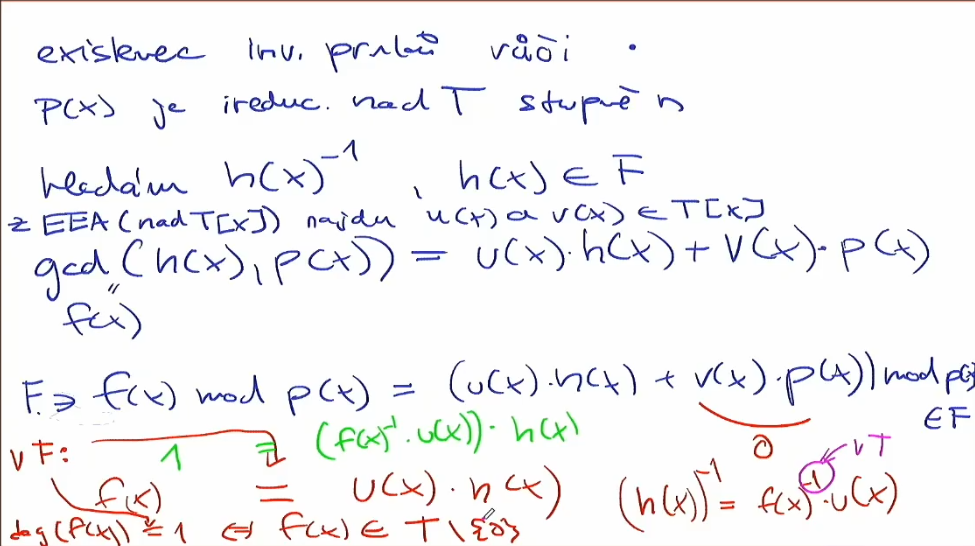 existenec inv. prvků vůči ·
p(x) je ireduc. nad T stupně n
hledám h(x)⁻¹, h(x) ∈ F
z EEA (nad T[x]) najdu u(x) a v(x) ∈ T[x]
gcd(h(x), p(x)) = u(x)·h(x) + v(x)·p(x)
"
f(x)
F ∋ f(x) mod p(x) = (u(x)·h(x) + v(x)·p(x)) mod p(x)
∈ F
0
v T
v F:
1 = (f(x)⁻¹·u(x))·h(x)
f(x) = u(x)·h(x)
(h(x))⁻¹ = f(x)⁻¹·u(x)
⇔ f(x) ∈ T \ {0}